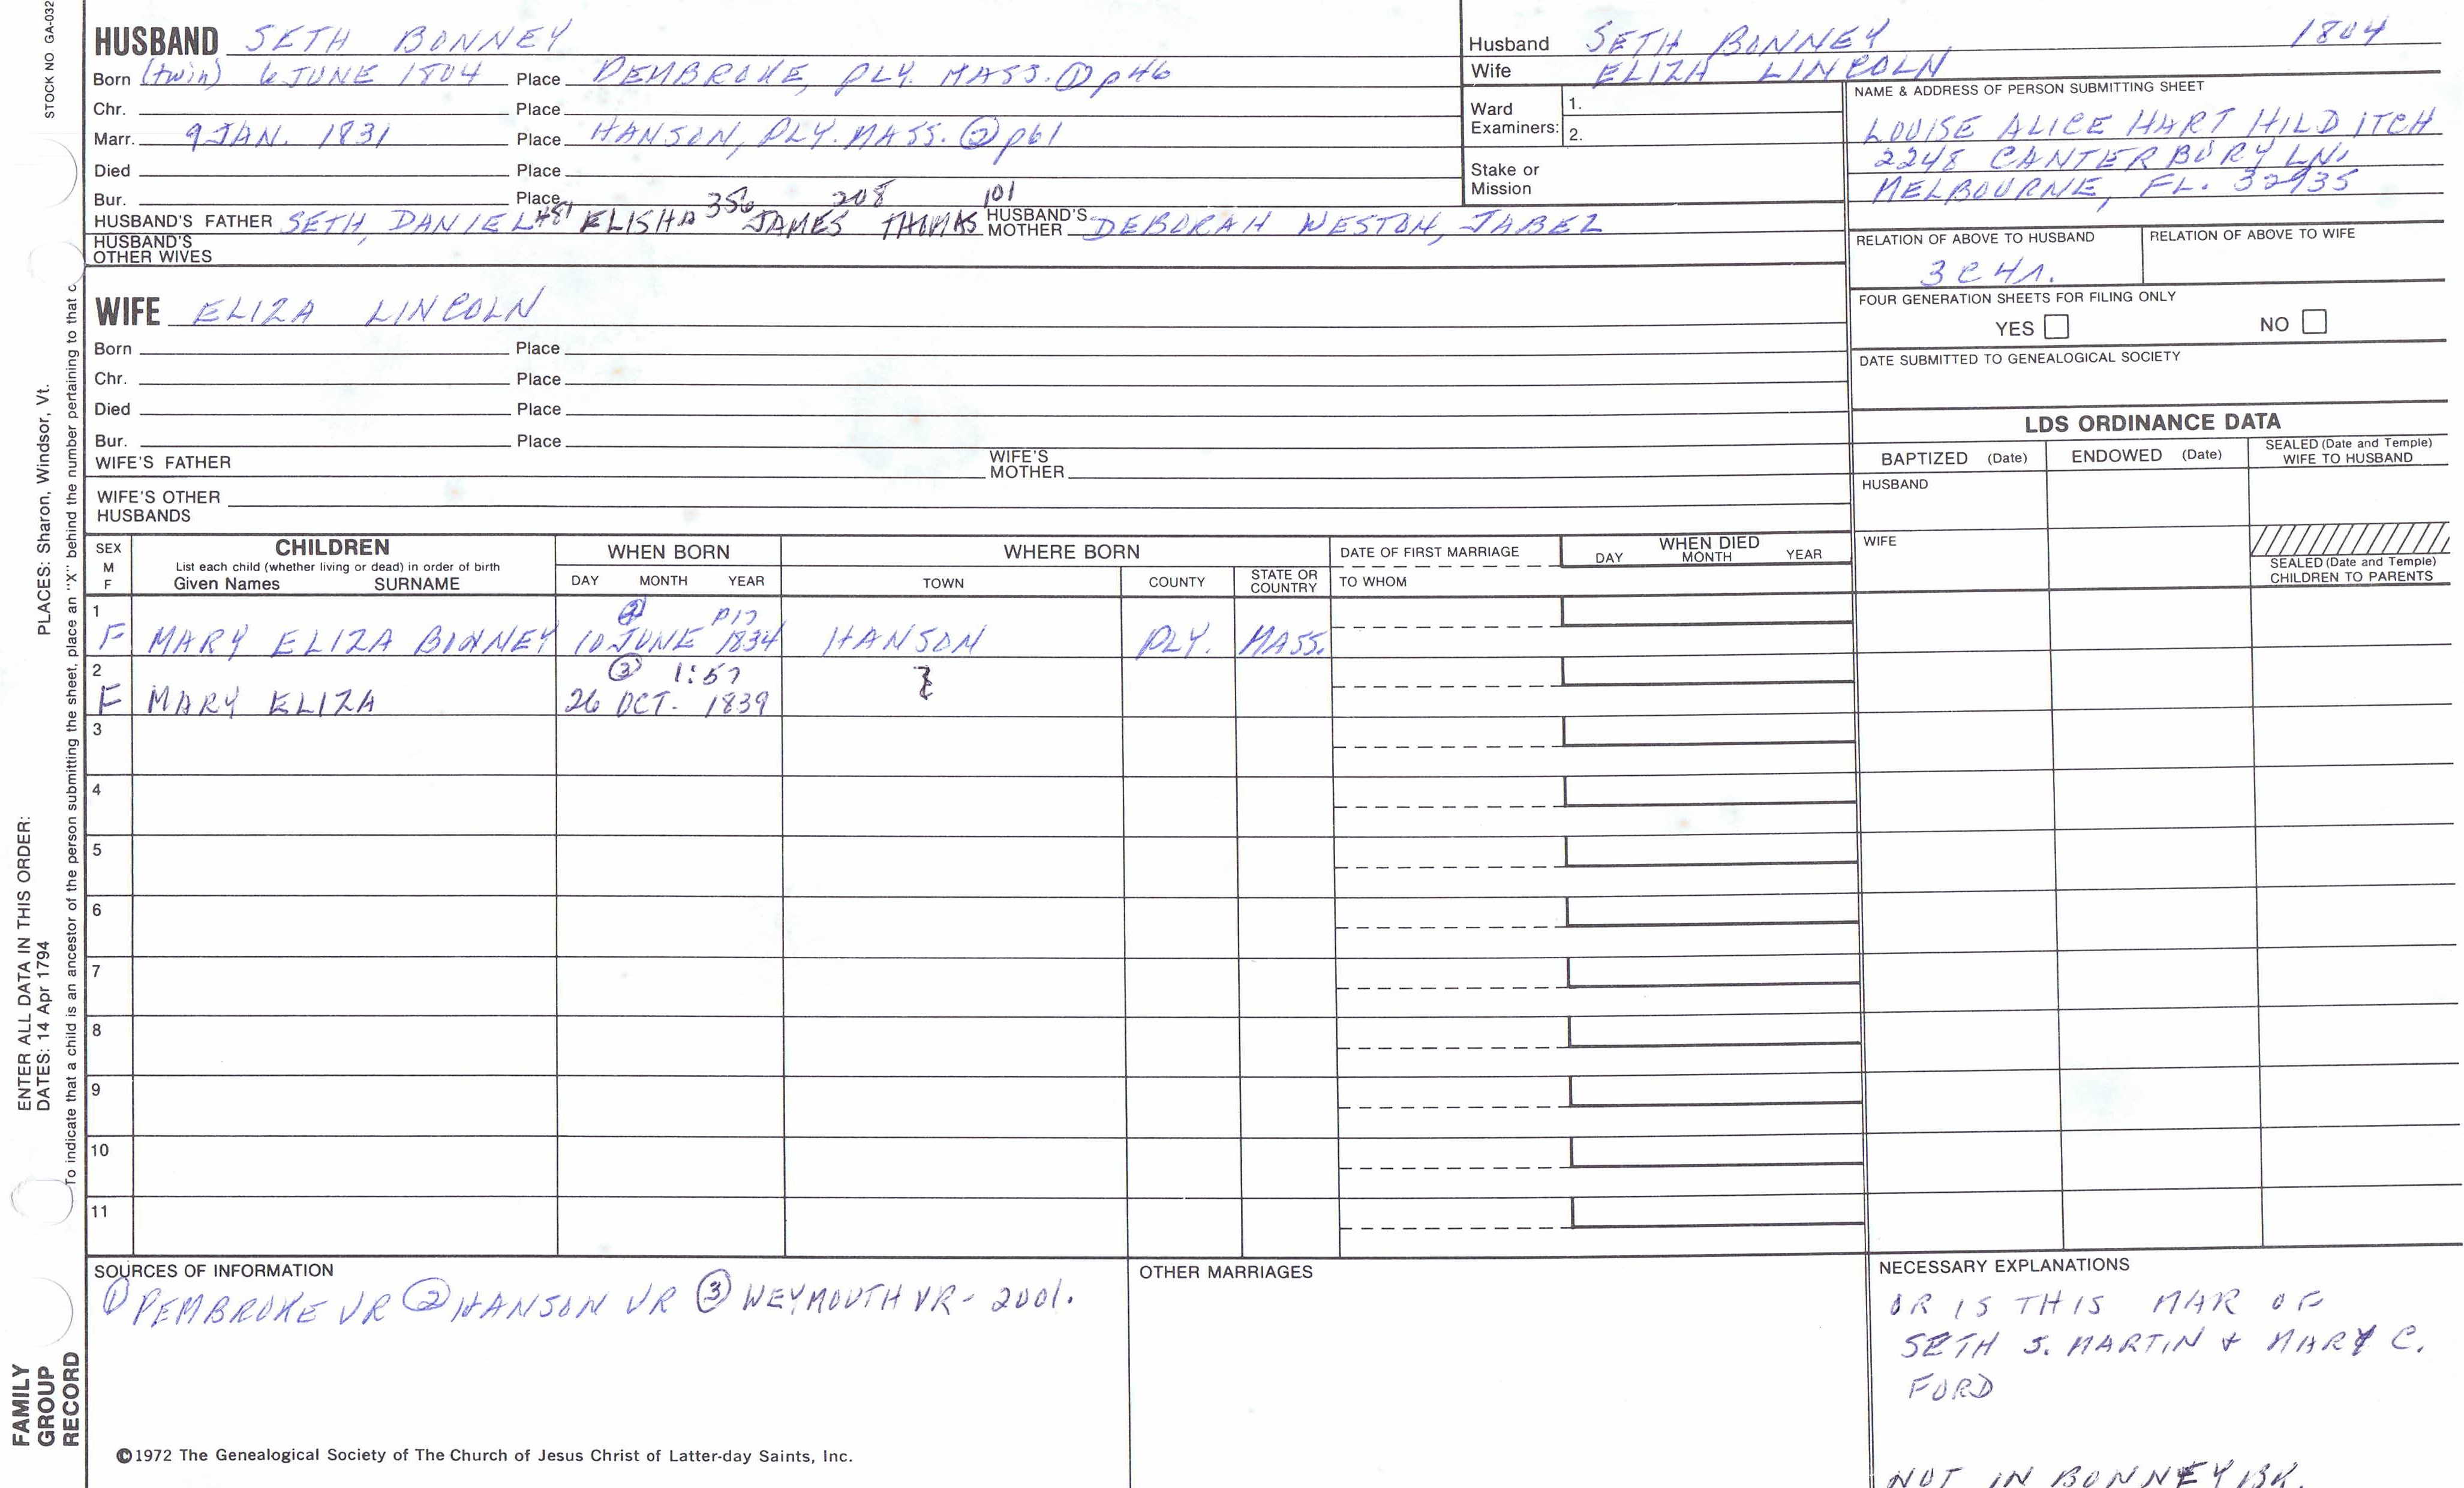 STOCK NO GA-032
HUSBAND SETH BONNEY
Born (twin) 6 JUNE 1804 Place PEMBROKE, PLY. MASS. ① p46
Chr. Place
Marr. 9 JAN. 1831 Place HANSON, PLY. MASS. ② p61
Died Place
Bur. Place
356 208 101
HUSBAND'S FATHER SETH, DANIEL 481 ELISHA JAMES THOMAS HUSBAND'S MOTHER DEBORAH WESTON, JABEZ
HUSBAND'S OTHER WIVES
Husband SETH BONNEY 1804
Wife ELIZA LINCOLN
Ward Examiners: 1.
2.
Stake or Mission
NAME & ADDRESS OF PERSON SUBMITTING SHEET
LOUISE ALICE HART HILDITCH
2248 CANTERBURY LN.
MELBOURNE, FL. 32935
RELATION OF ABOVE TO HUSBAND RELATION OF ABOVE TO WIFE
3 C 4 r.
FOUR GENERATION SHEETS FOR FILING ONLY
YES NO
DATE SUBMITTED TO GENEALOGICAL SOCIETY
WIFE ELIZA LINCOLN
Born Place
Chr. Place
Died Place
Bur. Place
WIFE'S FATHER WIFE'S MOTHER
WIFE'S OTHER HUSBANDS
LDS ORDINANCE DATA
BAPTIZED (Date) ENDOWED (Date) SEALED (Date and Temple) WIFE TO HUSBAND
HUSBAND
WIFE
SEALED (Date and Temple) CHILDREN TO PARENTS
SEX M F
CHILDREN
List each child (whether living or dead) in order of birth
Given Names SURNAME
WHEN BORN
DAY MONTH YEAR
WHERE BORN
TOWN COUNTY STATE OR COUNTRY
DATE OF FIRST MARRIAGE
TO WHOM
WHEN DIED
DAY MONTH YEAR
1 ② P17
F MARY ELIZA BONNEY 10 JUNE 1834 HANSON PLY. MASS.
2 ③ 1:57
F MARY ELIZA 26 OCT. 1839
3
4
5
6
7
8
9
10
11
SOURCES OF INFORMATION
① PEMBROKE VR ② HANSON VR ③ WEYMOUTH VR - 2001.
OTHER MARRIAGES
NECESSARY EXPLANATIONS
OR IS THIS MAR OF
SETH S. MARTIN + MARY C.
FORD
NOT IN BONNEY BK.
©1972 The Genealogical Society of The Church of Jesus Christ of Latter-day Saints, Inc.
PLACES: Sharon, Windsor, Vt.
ENTER ALL DATA IN THIS ORDER:
DATES: 14 Apr 1794
To indicate that a child is an ancestor of the person submitting the sheet, place an "X" behind the number pertaining to that c
FAMILY
GROUP
RECORD